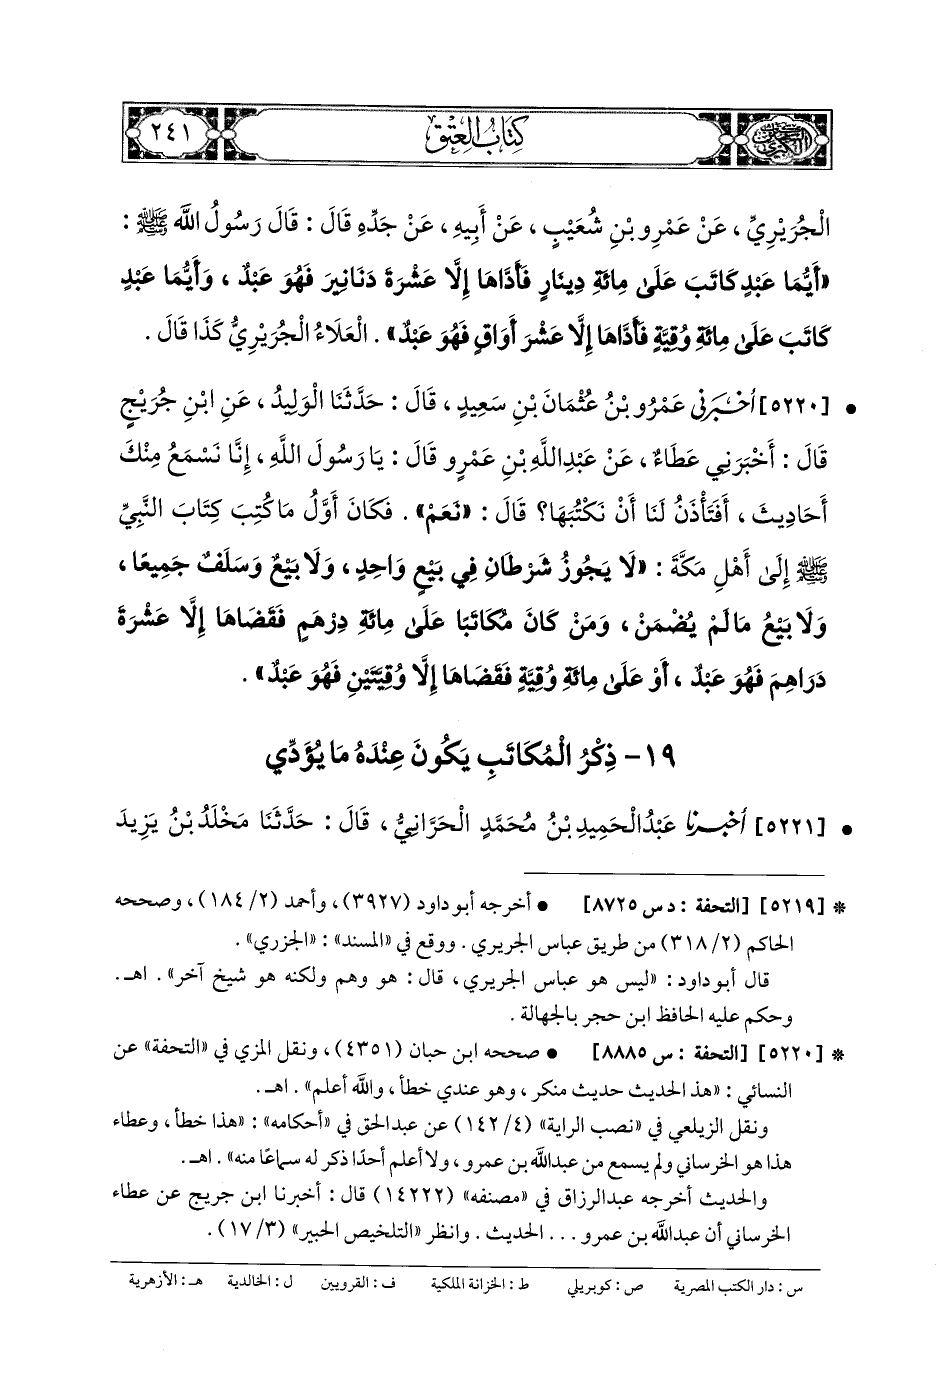 السنن الكبرى
كتاب العتق
٢٤١
الْجُرَيْرِيِّ ، عَنْ عَمْرِو بْنِ شُعَيْبٍ ، عَنْ أَبِيهِ ، عَنْ جَدِّهِ قَالَ : قَالَ رَسُولُ اللَّه ﷺ :
«أَيُّمَا عَبْدٍ كَاتَبَ عَلَى مِائَةِ دِينَارٍ فَأَدَّاهَا إِلَّا عَشْرَةَ دَنَانِيرَ فَهُوَ عَبْدٌ ، وَأَيُّمَا عَبْدٍ
كَاتَبَ عَلَى مِائَةِ وُقِيَّةٍ فَأَدَّاهَا إِلَّا عَشْرَ أَوَاقٍ فَهُوَ عَبْدٌ» . الْعَلَاءُ الْجُرَيْرِيُّ كَذَا قَالَ .
• [٥٢٢٠] أَخْبَرَنِي عَمْرُو بْنُ عُثْمَانَ بْنِ سَعِيدٍ ، قَالَ : حَدَّثَنَا الْوَلِيدُ ، عَنِ ابْنِ جُرَيْجٍ
قَالَ : أَخْبَرَنِي عَطَاءٌ ، عَنْ عَبْدِاللَّهِ بْنِ عَمْرٍو قَالَ : يَا رَسُولَ اللَّهِ ، إِنَّا نَسْمَعُ مِنْكَ
أَحَادِيثَ ، أَفَتَأْذَنُ لَنَا أَنْ نَكْتُبَهَا؟ قَالَ : «نَعَمْ» . فَكَانَ أَوَّلُ مَا كُتِبَ كِتَابَ النَّبِيِّ
ﷺ إِلَى أَهْلِ مَكَّةَ : «لَا يَجُوزُ شَرْطَانِ فِي بَيْعٍ وَاحِدٍ ، وَلَا بَيْعٌ وَسَلَفٌ جَمِيعًا ،
وَلَا بَيْعُ مَا لَمْ يُضْمَنْ ، وَمَنْ كَانَ مُكَاتَبًا عَلَى مِائَةِ دِرْهَمٍ فَقَضَاهَا إِلَّا عَشْرَةَ
دَرَاهِمَ فَهُوَ عَبْدٌ ، أَوْ عَلَى مِائَةِ وُقِيَّةٍ فَقَضَاهَا إِلَّا وُقِيَّتَيْنِ فَهُوَ عَبْدٌ» .
١٩- ذِكْرُ الْمُكَاتَبِ يَكُونَ عِنْدَهُ مَا يُؤَدِّي
• [٥٢٢١] أَخْبَرَنَا عَبْدُالْحَمِيدِ بْنُ مُحَمَّدٍ الْحَرَّانِيُّ ، قَالَ : حَدَّثَنَا مَخْلَدُ بْنُ يَزِيدَ
* [٥٢١٩] [التحفة : د س ٨٧٢٥] • أخرجه أبو داود (٣٩٢٧)، وأحمد (٢/ ١٨٤)، وصححه
الحاكم (٢/ ٣١٨) من طريق عباس الجريري . ووقع في «المسند» : «الجزري» .
قال أبو داود : «ليس هو عباس الجريري، قال: هو وهم ولكنه هو شيخ آخر» . اهـ.
وحكم عليه الحافظ ابن حجر بالجهالة .
* [٥٢٢٠] [التحفة : س ٨٨٨٥] • صححه ابن حبان (٤٣٥١)، ونقل المزي في «التحفة» عن
النسائي : «هذ الحديث حديث منكر ، وهو عندي خطأ ، والله أعلم» . اهـ.
ونقل الزيلعي في «نصب الراية» (٤/ ١٤٢) عن عبد الحق في «أحكامه» : «هذا خطأ ، وعطاء
هذا هو الخرساني ولم يسمع من عبدالله بن عمرو ، ولا أعلم أحدًا ذكر له سماعًا منه» . اهـ.
والحديث أخرجه عبدالرزاق في «مصنفه» (١٤٢٢٢) قال : أخبرنا ابن جريج عن عطاء
الخرساني أن عبدالله بن عمرو . . . الحديث . وانظر «التلخيص الحبير» (٣/ ١٧) .
س : دار الكتب المصرية ص : كوبريلي ط : الخزانة الملكية ف : القرويين ل : الخالدية هـ : الأزهرية